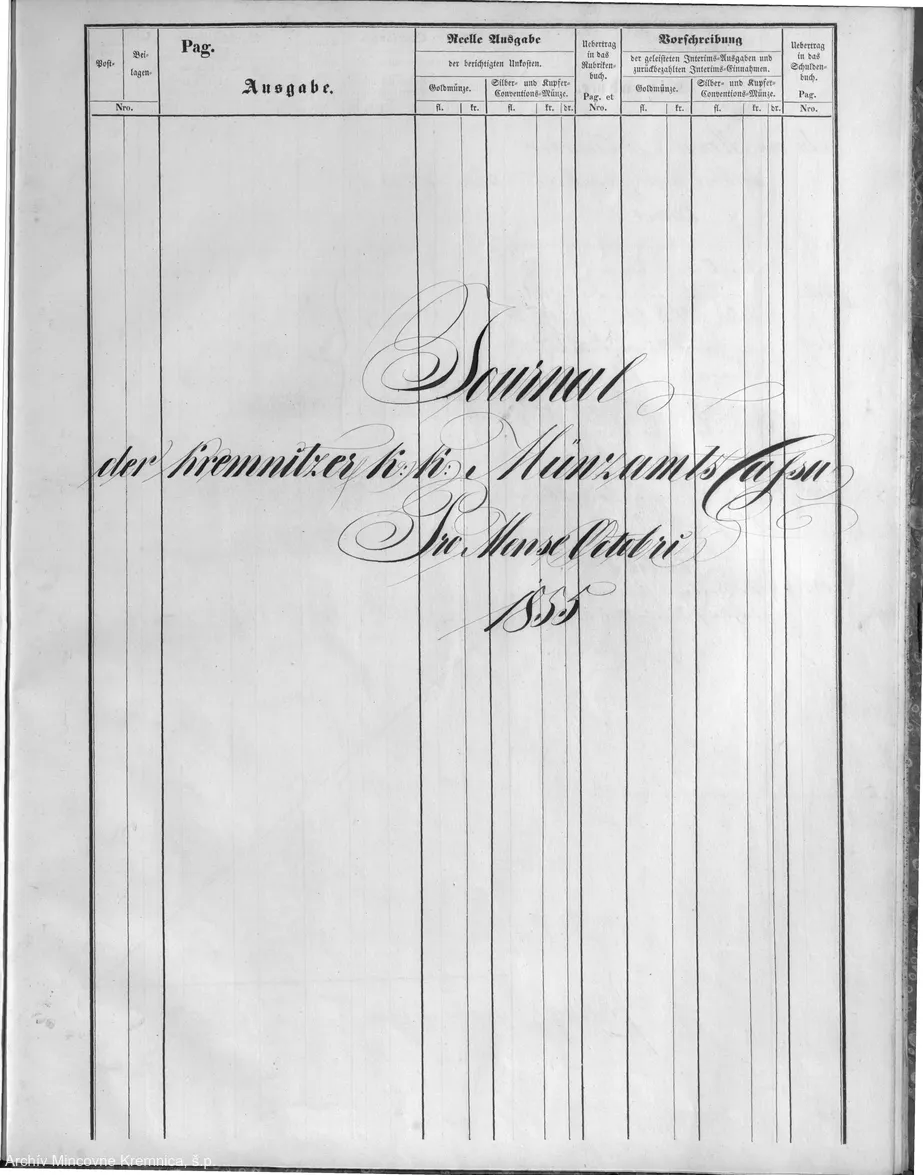 Pag.
Ausgabe.
Post-
Bei-
lagen-
Nro.
Reelle Ausgabe
der berichtigten Unkosten.
Goldmünze.
Silber- und Kupfer-
Conventions-Münze.
fl. kr. fl. kr. dr.
Uebertrag
in das
Rubriken-
buch.
Pag. et
Nro.
Vorschreibung
der geleisteten Interims-Ausgaben und
zurückbezahlten Interims-Einnahmen.
Goldmünze.
Silber- und Kupfer-
Conventions-Münze.
fl. kr. fl. kr. dr.
Uebertrag
in das
Schulden-
buch.
Pag.
Nro.
Journal
der Kremnitzer k: k: Münzamts Cassa
Pro Mense Octobri
1855
Archív Mincovne Kremnica, š.p.